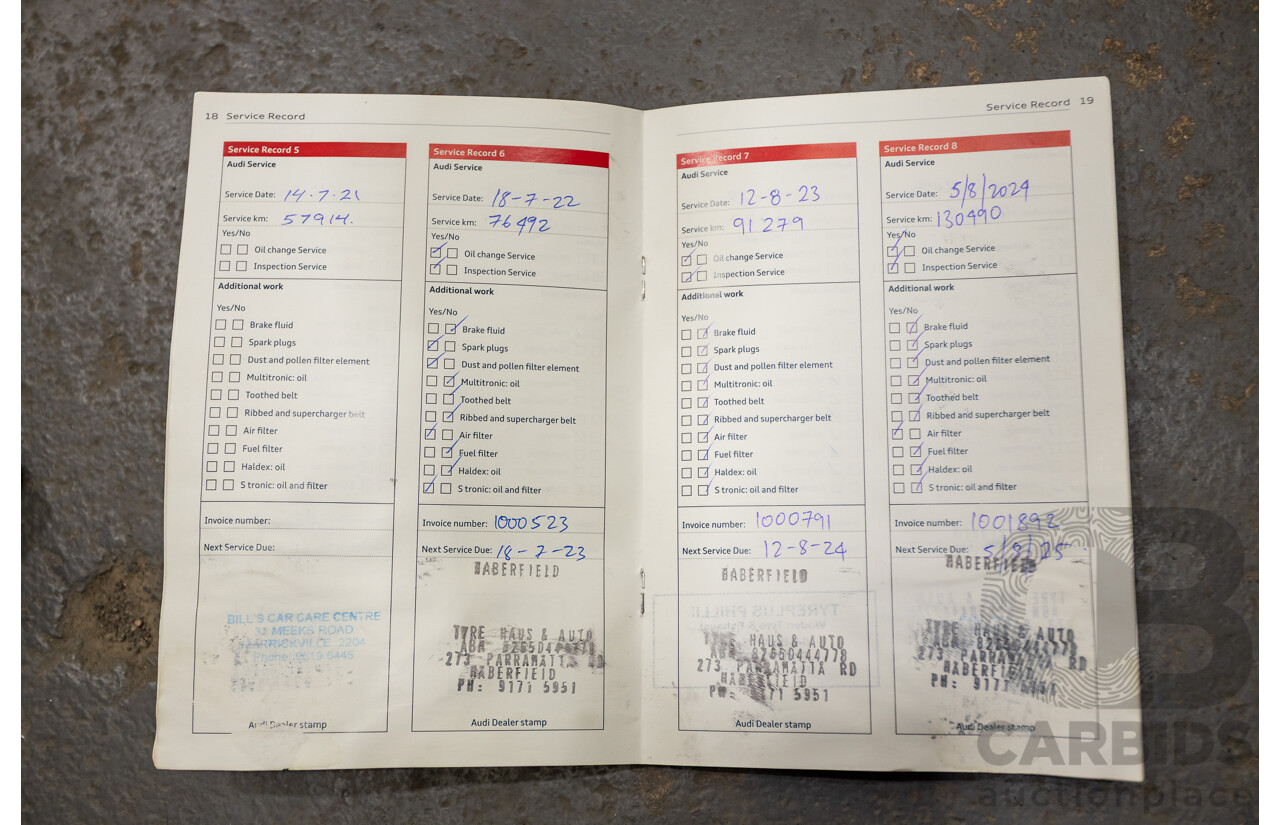 18 Service Record
Service Record 5
Audi Service
Service Date: 14.7.21
Service km: 57914.
Yes/No
Oil change Service
Inspection Service
Additional work
Yes/No
Brake fluid
Spark plugs
Dust and pollen filter element
Multitronic: oil
Toothed belt
Ribbed and supercharger belt
Air filter
Fuel filter
Haldex: oil
S tronic: oil and filter
Invoice number:
Next Service Due:
BILL'S CAR CARE CENTRE
MEEKS ROAD
MARRICKVILLE 2204
Audi Dealer stamp
Service Record 6
Audi Service
Service Date: 18-7-22
Service km: 76492
Yes/No
Oil change Service
Inspection Service
Additional work
Yes/No
Brake fluid
Spark plugs
Dust and pollen filter element
Multitronic: oil
Toothed belt
Ribbed and supercharger belt
Air filter
Fuel filter
Haldex: oil
S tronic: oil and filter
Invoice number: 1000523
Next Service Due: 18-7-23
HABERFIELD
TYRE HAUS & AUTO
ABN 82650444778
273 PARRAMATTA RD
HABERFIELD
PH: 9171 5951
Audi Dealer stamp
Service Record 19
Service Record 7
Audi Service
Service Date: 12-8-23
Service km: 91279
Yes/No
Oil change Service
Inspection Service
Additional work
Yes/No
Brake fluid
Spark plugs
Dust and pollen filter element
Multitronic: oil
Toothed belt
Ribbed and supercharger belt
Air filter
Fuel filter
Haldex: oil
S tronic: oil and filter
Invoice number: 1000791
Next Service Due: 12-8-24
HABERFIELD
TYRE HAUS & AUTO
ABN 82650444778
273 PARRAMATTA RD
HABERFIELD
PH: 9171 5951
Audi Dealer stamp
Service Record 8
Audi Service
Service Date: 5/8/2024
Service km: 130490
Yes/No
Oil change Service
Inspection Service
Additional work
Yes/No
Brake fluid
Spark plugs
Dust and pollen filter element
Multitronic: oil
Toothed belt
Ribbed and supercharger belt
Air filter
Fuel filter
Haldex: oil
S tronic: oil and filter
Invoice number: 1001892
Next Service Due: 5/8/25
HABERFIELD
TYRE HAUS & AUTO
ABN 82650444778
273 PARRAMATTA RD
HABERFIELD
PH: 9171 5951
Audi Dealer stamp
CARBIDS
auctionplace